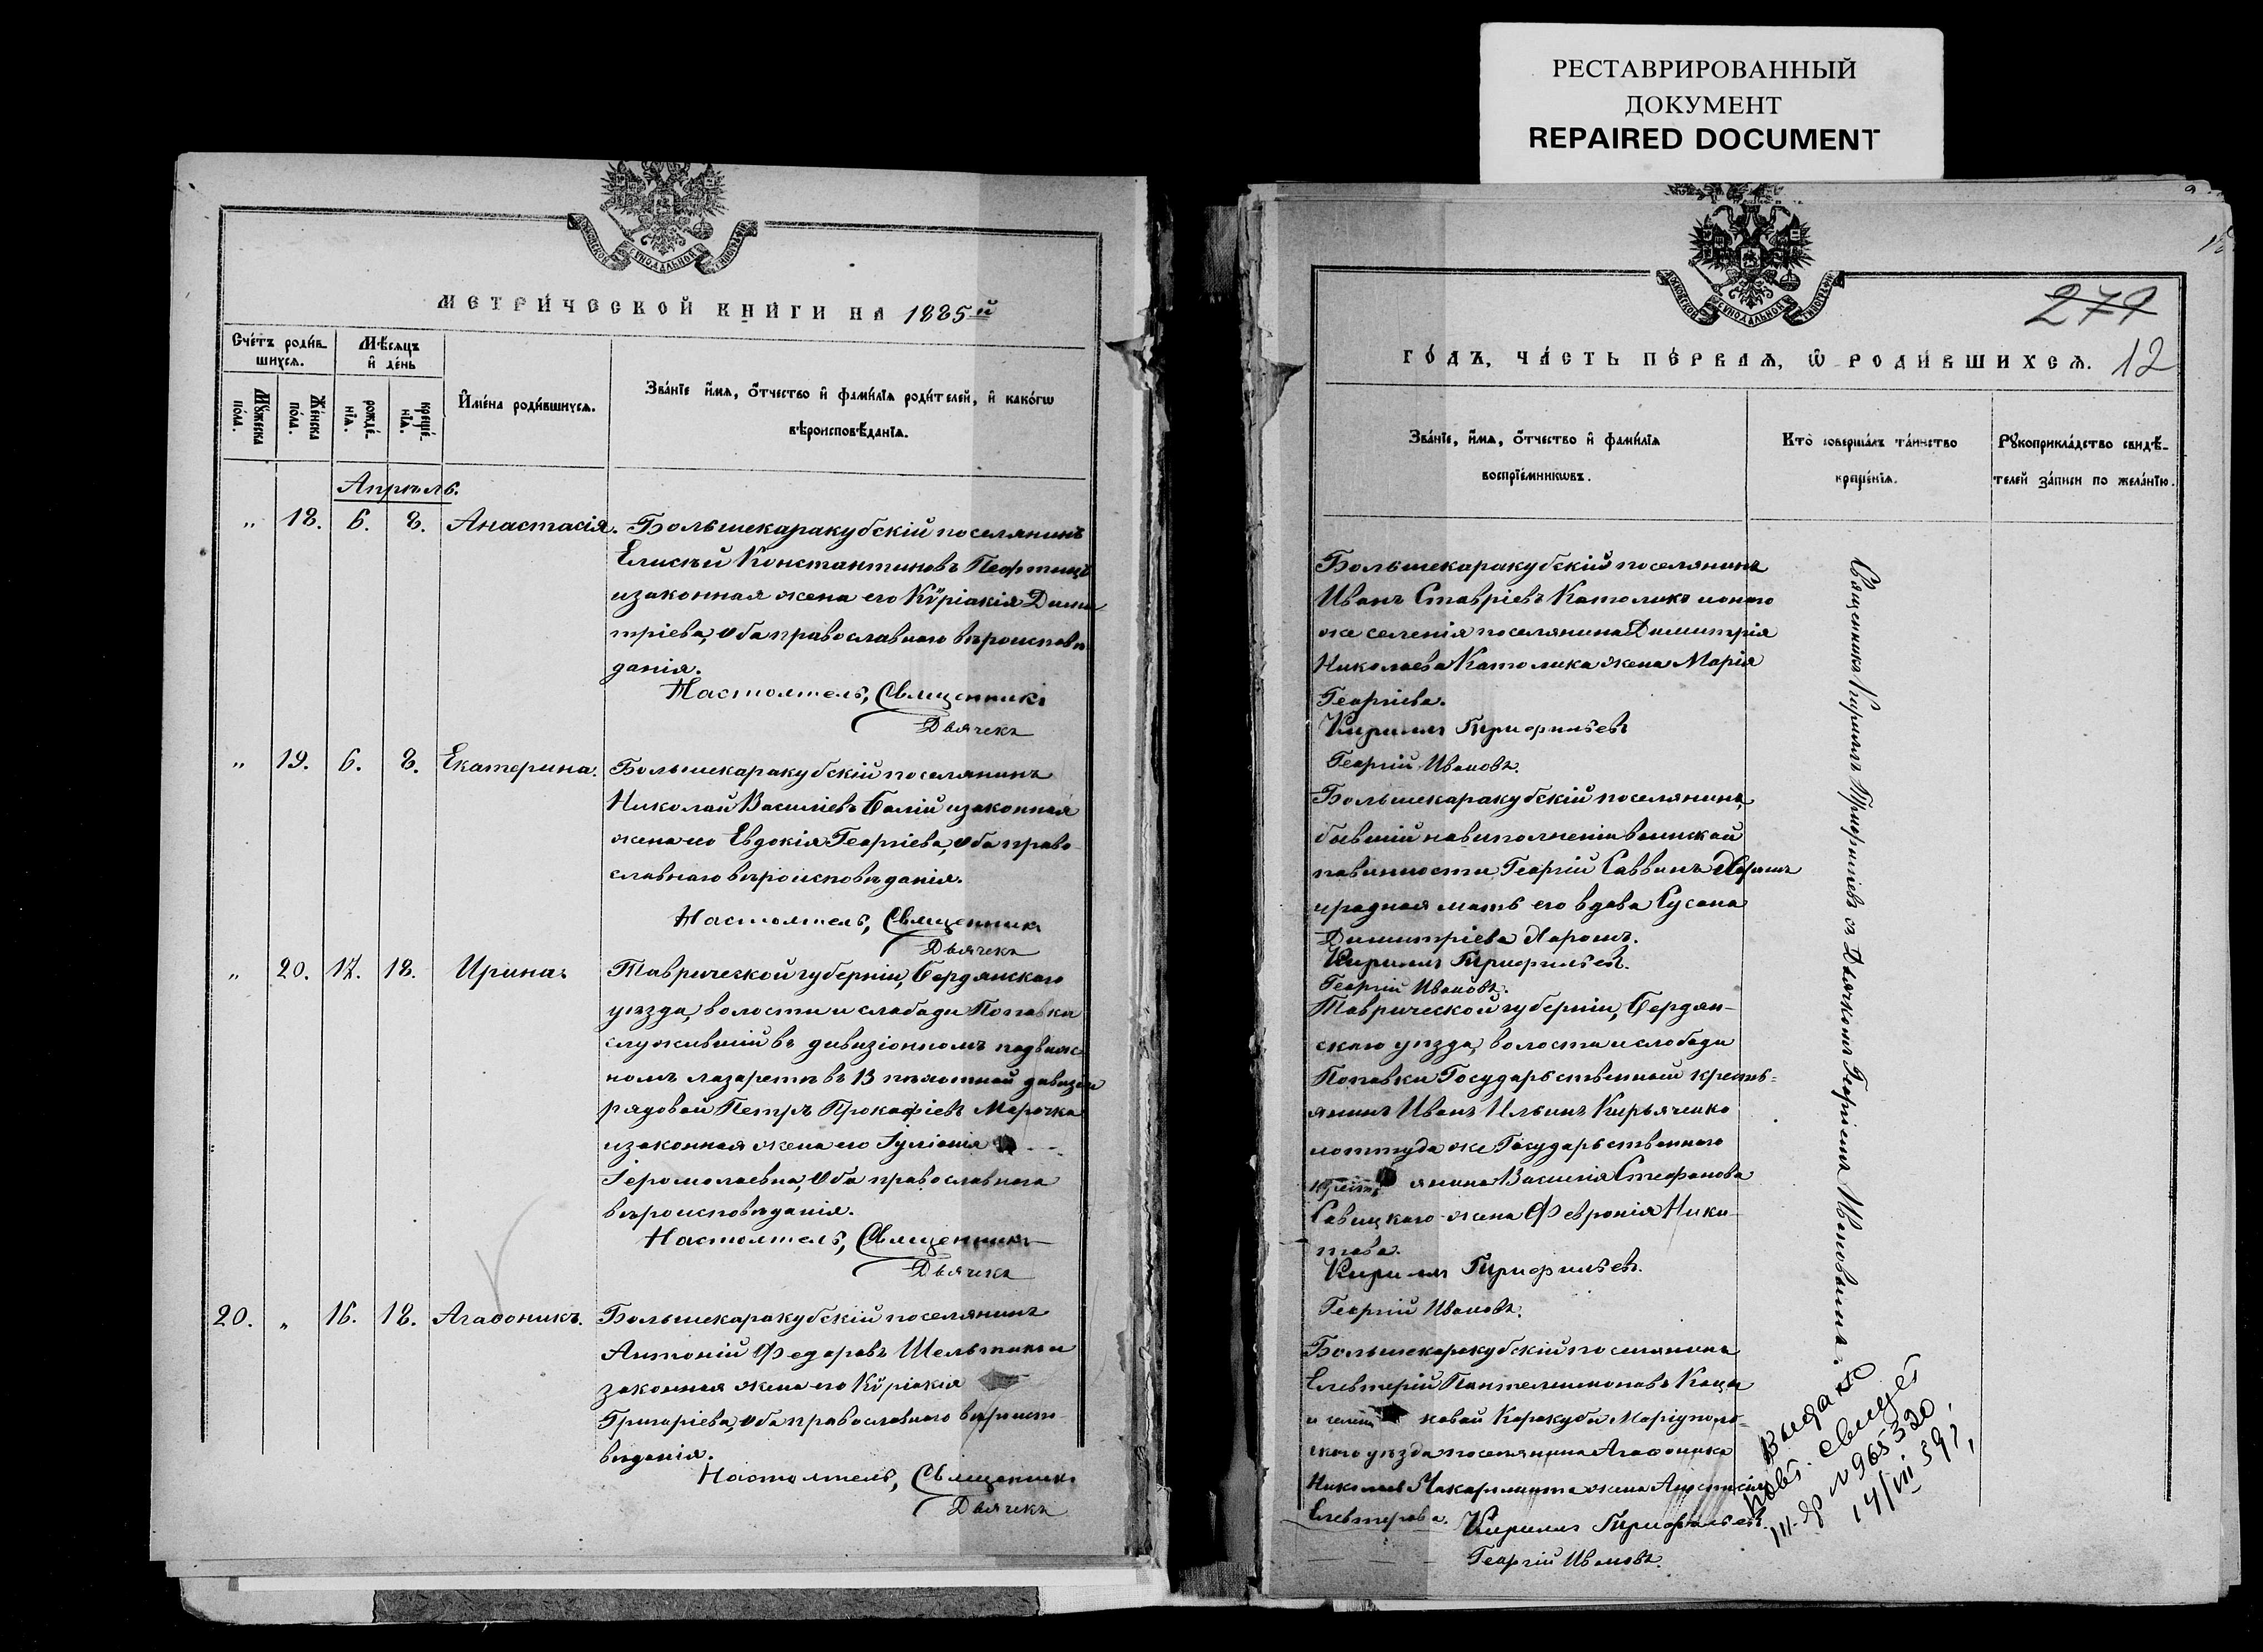 РЕСТАВРИРОВАННЫЙ
ДОКУМЕНТ
REPAIRED DOCUMENT
МЕТРИ́ЧЕСКОЙ КНИ́ГИ НА 1885й
Счетъ роди́в
шихся.
Мѣсяцъ
и҆ де́нь
Мꙋ́жеска
по́ла.
Же́нска
по́ла.
рожде́-
нїѧ.
креще́-
нїѧ.
И҆мена̀ роди́вшихсѧ.
Зва́нїе и҆́мѧ, ѻ҆́тчество и҆ фамѝлїѧ роди́телей, и҆ како́гѡ
вѣроисповѣ́данїѧ.
Апрѣль.
" 18. 6. 8. Анастасія. Большекаракубскій поселянинъ
Елисѣй Константиновъ
и законная жена его Кѵріакія Дими
тріева, оба православнаго вѣроисповѣ
данія.
Настоятель, Священникъ
Дьячекъ
" 19. 6. 8. Екатерина. Большекаракубскій поселянинъ
Николай Василіевъ Балій и законная
жена его Евдокія Георгіева, оба право
славнаго вѣроисповѣданія.
Настоятель, Священникъ
Дьячекъ
" 20. 17. 18. Ирина Таврической губерніи, Бердянскаго
уѣзда, волости и слободы Поповки
служившій въ дивизіонномъ подвиж
номъ лазаретѣ въ 13 пѣхотной дивизіи
рядовой Петръ Прокофіевъ Марочка
и законная жена его Іуліанія
Іеромолаевна, оба православнаго
вѣроисповѣданія.
Настоятель, Священникъ
Дьячекъ
20. " 16. 18. Агаѳоникъ. Большекаракубскій поселянинъ
Антоній Федоровъ и
законная жена его Кѵріакія
Григоріева, оба православнаго вѣроиспо
вѣданія.
Настоятель, Священникъ
Дьячекъ
279
ГО́ДЪ, ЧА́СТЬ ПЕ́РВАѦ, Ѡ РОДИ́ВШИХСѦ. 12
Зва́нїе, и҆́мѧ, ѻ҆́тчество и҆ фами́лїѧ
воспрїе́мникѡвъ.
Кто̀ соверша́лъ та́инство
креще́нїѧ.
Рꙋкоприкла́дство свидѣ́-
телей за́писи по жела́нїю.
Большекаракубскій поселянинъ
Иванъ Ставріевъ Католикъ и онаго
же селенія поселянина Димитрія
Николаева Католика жена Марія
Георгіева.
Кириллъ
Георгій Ивановъ.
Большекаракубскій поселянинъ,
бывшій на выполненіи воинской
повинности Георгій Саввинъ
и родная мать его вдова Сусана
Димитріева
Кириллъ
Георгій Ивановъ.
Таврической губерніи, Бердян-
скаго уѣзда, волости и слободы
Поповки Государьственный кресть-
янинъ Иванъ Ильинъ Кирьяченко
и оттуда же Государьственнаго
крест янина Василія Стефанова
Савицкаго жена Февронія Ники-
това.
Кириллъ
Георгій Ивановъ.
Большекаракубскій поселянинъ
Елевтерій Пантелеимоновъ
и новой Каракубы Маріуполь-
скаго уѣзда поселянина Агаѳоника
Николаев жена Анастасія
Елевтерова. Кириллъ
Георгій Ивановъ.
Священникъ Кириллъ съ Дьячкомъ Георгіемъ Ивановымъ.
Выдано
повт. свидет
№ 965320
14/VII 59г,